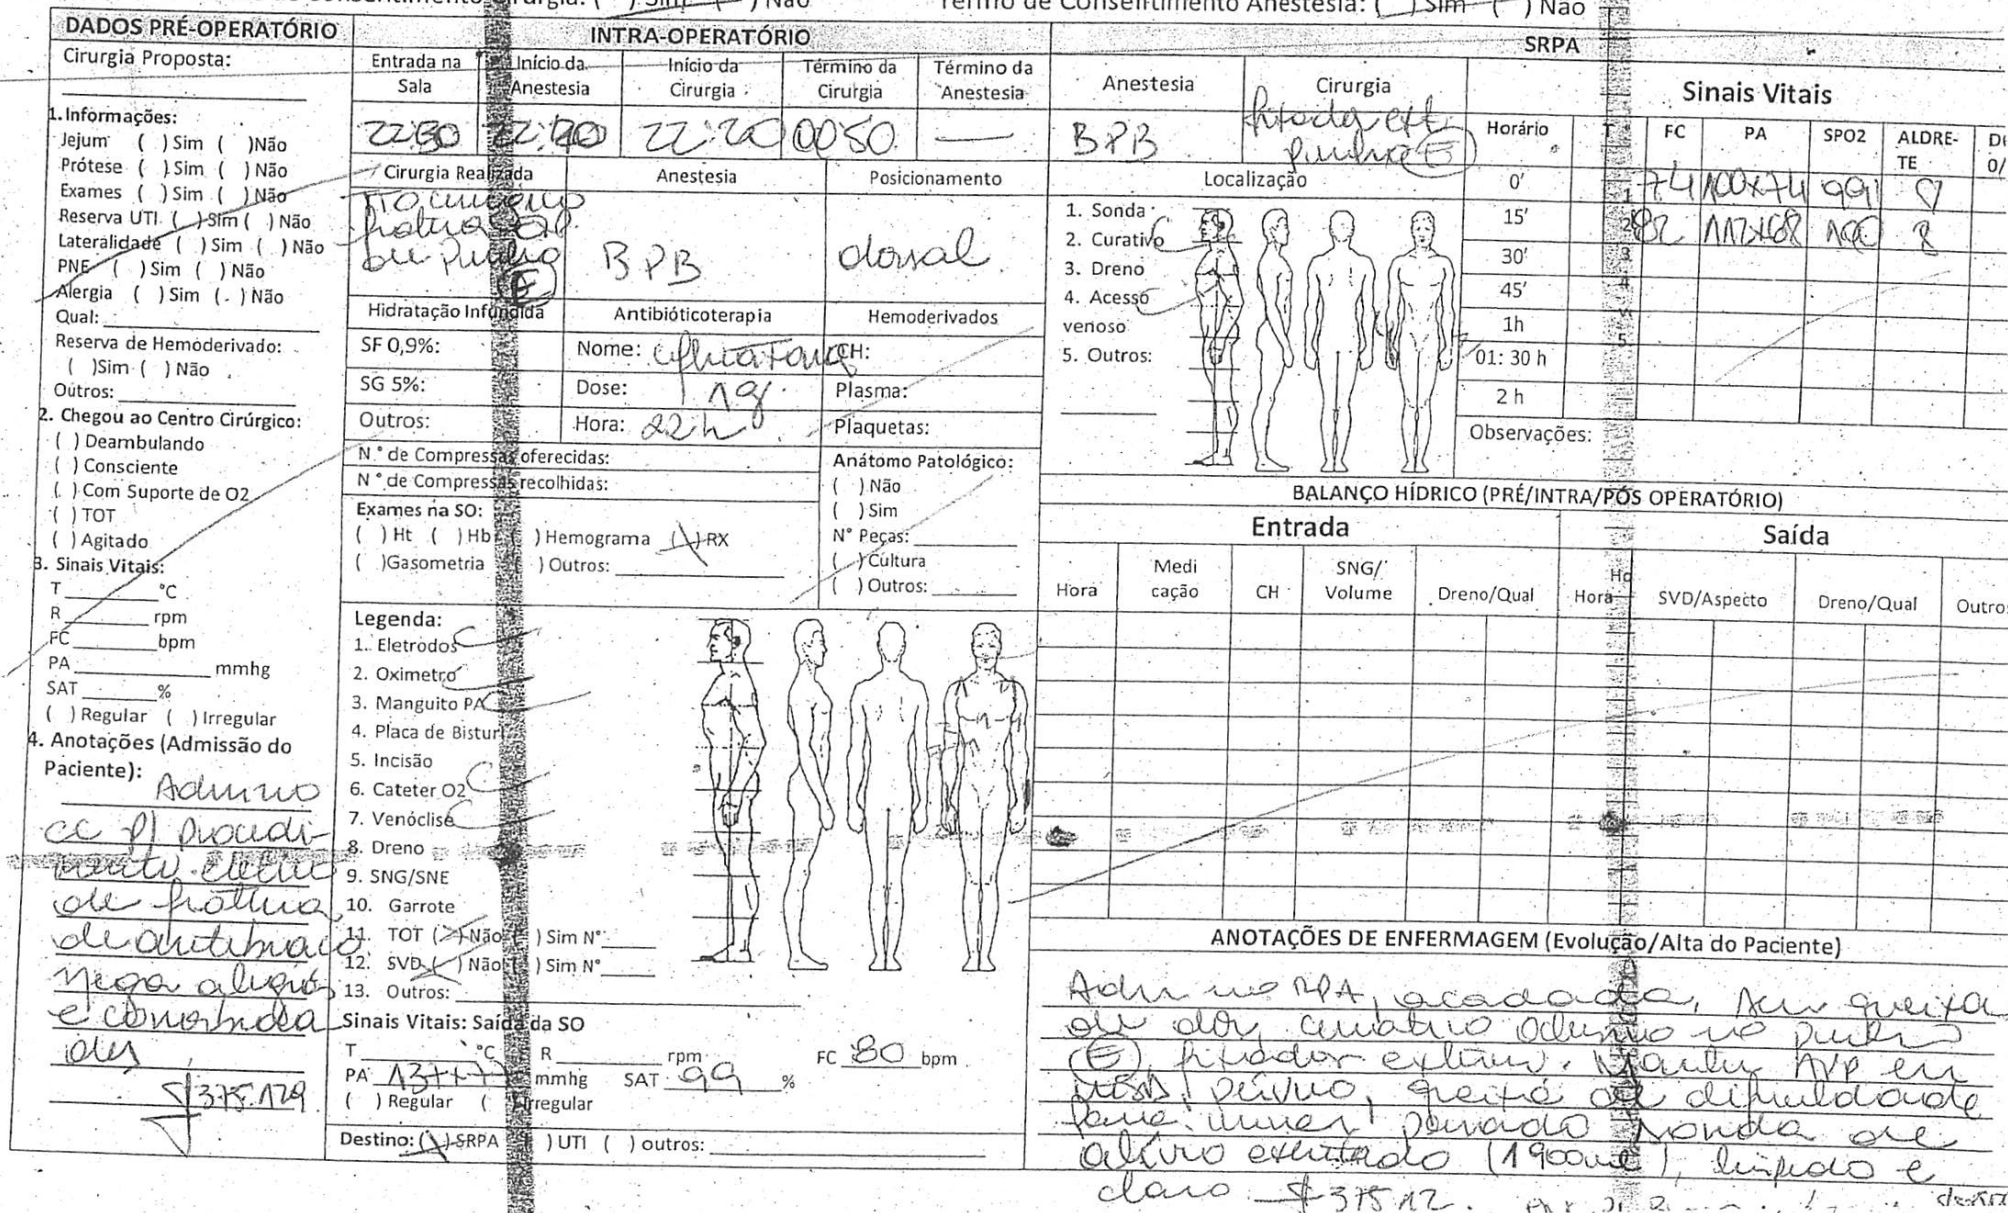 Termo de Consentimento Anestesia: ( ) Sim ( ) Não
DADOS PRÉ-OPERATÓRIO
Cirurgia Proposta:
1. Informações:
Jejum ( ) Sim ( ) Não
Prótese ( ) Sim ( ) Não
Exames ( ) Sim ( ) Não
Reserva UTI ( ) Sim ( ) Não
Lateralidade ( ) Sim ( ) Não
PNE ( ) Sim ( ) Não
Alergia ( ) Sim ( ) Não
Qual:
Reserva de Hemoderivado:
( ) Sim ( ) Não
Outros:
2. Chegou ao Centro Cirúrgico:
( ) Deambulando
( ) Consciente
( ) Com Suporte de O2
( ) TOT
( ) Agitado
3. Sinais Vitais:
T °C
R rpm
FC bpm
PA mmhg
SAT %
( ) Regular ( ) Irregular
4. Anotações (Admissão do
Paciente):
Admito
cc p/ procedi-
mento eletivo
de fratura
de antebraço
nega alergias
e comorbida
des
INTRA-OPERATÓRIO
Entrada na Sala
Início da Anestesia
Início da Cirurgia
Término da Cirurgia
Término da Anestesia
22:20 0050 —
Cirurgia Realizada
Anestesia
Posicionamento
fratura
de Punho
(E)
BPB
dorsal
Hidratação Infundida
Antibióticoterapia
Hemoderivados
SF 0,9%:
Nome:
CH:
SG 5%:
Dose: 1g
Plasma:
Outros:
Hora: 22h
Plaquetas:
N.° de Compressas oferecidas:
N ° de Compressas recolhidas:
Anátomo Patológico:
( ) Não
( ) Sim
N° Peças:
( ) Cultura
( ) Outros:
Exames na SO:
( ) Ht ( ) Hb ( ) Hemograma (X) RX
( ) Gasometria ( ) Outros:
Legenda:
1. Eletrodos
2. Oximetro
3. Manguito PA
4. Placa de Bisturi
5. Incisão
6. Cateter O2
7. Venóclise
8. Dreno
9. SNG/SNE
10. Garrote
11. TOT (X) Não ( ) Sim N°
12. SVD ( ) Não ( ) Sim N°
13. Outros:
Sinais Vitais: Saída da SO
T °C R rpm FC 80 bpm
PA mmhg SAT 99 %
( ) Regular ( ) Irregular
Destino: (X) SRPA ( ) UTI ( ) outros:
SRPA
Anestesia
Cirurgia
BPB
punho (E)
Localização
1. Sonda
2. Curativo
3. Dreno
4. Acesso
venoso
5. Outros:
Sinais Vitais
Horário T FC PA SPO2 ALDRE-
TE
0' 74 100x74 99
15' 82 112x68 100
30'
45'
1h
01: 30 h
2 h
Observações:
BALANÇO HÍDRICO (PRÉ/INTRA/PÓS OPERATÓRIO)
Entrada
Saída
Hora
Medi
cação
CH
SNG/
Volume
Dreno/Qual
Hora
SVD/Aspecto
Dreno/Qual
Outro
ANOTAÇÕES DE ENFERMAGEM (Evolução/Alta do Paciente)
Adm no RPA, acordada, sem queixa
de dor, curativo no punho
(E), fixador externo. Mantem AVP em
MSD, pérvio, queixa de dificuldade
para urinar, passado sonda de
alívio (1900ml), limpido e
claro